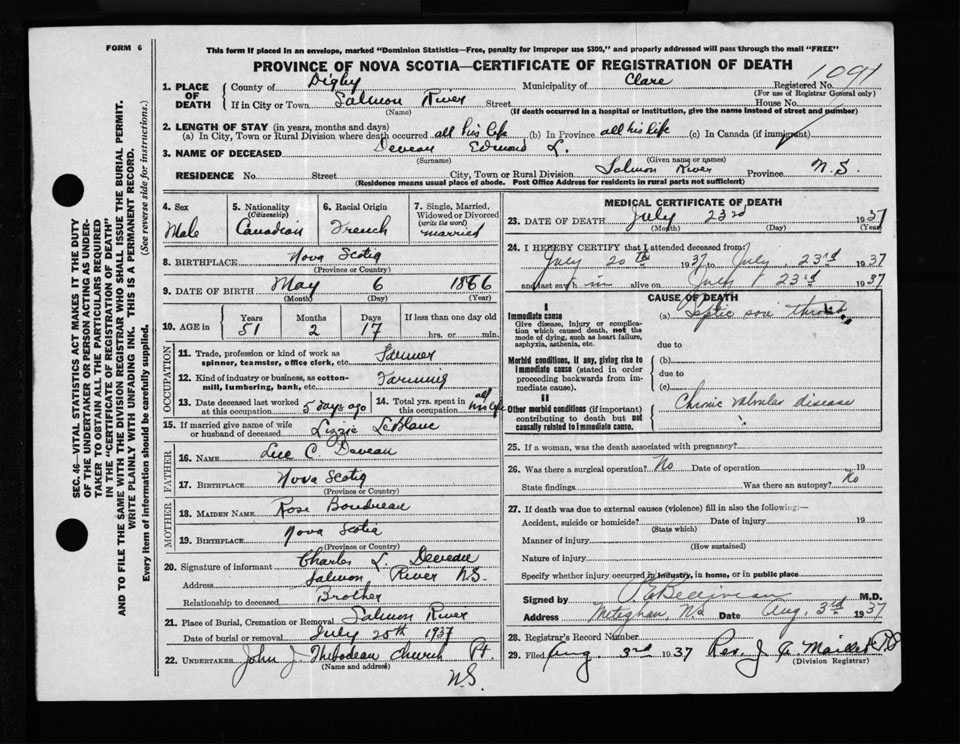 FORM 6
This form if placed in an envelope, marked "Dominion Statistics—Free, penalty for improper use $300," and properly addressed will pass through the mail "FREE"
PROVINCE OF NOVA SCOTIA—CERTIFICATE OF REGISTRATION OF DEATH
1. PLACE OF DEATH
County of Digby Municipality of Clare Registered No. 1091
(For use of Registrar General only)
If in City or Town Salmon River Street House No.
(Name) (If death occurred in a hospital or institution, give the name instead of street and number)
2. LENGTH OF STAY (in years, months and days)
(a) In City, Town or Rural Division where death occurred all his life (b) In Province all his life (c) In Canada (if immigrant)
3. NAME OF DECEASED Deveau Edmond L.
(Surname) (Given name or names)
RESIDENCE No. Street City, Town or Rural Division Salmon River Province N.S.
(Residence means usual place of abode. Post Office Address for residents in rural parts not sufficient)
4. Sex Male
5. Nationality (Citizenship) Canadian
6. Racial Origin French
7. Single, Married, Widowed or Divorced (write the word) married
8. BIRTHPLACE Nova Scotia
(Province or Country)
9. DATE OF BIRTH May 6 1886
(Month) (Day) (Year)
10. AGE in Years Months Days If less than one day old
51 2 17 hrs. or min.
OCCUPATION
11. Trade, profession or kind of work as spinner, teamster, office clerk, etc. Farmer
12. Kind of industry or business, as cotton-mill, lumbering, bank, etc. Farming
13. Date deceased last worked at this occupation 5 days ago
14. Total yrs. spent in this occupation all his life
15. If married give name of wife or husband of deceased Lizzie LeBlanc
FATHER
16. Name Luc C. Deveau
17. Birthplace Nova Scotia
(Province or Country)
MOTHER
18. Maiden Name Rose Boudreau
19. Birthplace Nova Scotia
(Province or Country)
20. Signature of informant Charles L. Deveau
Address Salmon River NS.
Relationship to deceased Brother
21. Place of Burial, Cremation or Removal Salmon River
Date of burial or removal July 25th 1937
22. Undertaker John J. Thibodeau Church Pt.
(Name and address)
NS
MEDICAL CERTIFICATE OF DEATH
23. DATE OF DEATH July 23rd 1937
(Month) (Day) (Year)
24. I HEREBY CERTIFY that I attended deceased from
July 20th 1937 to July 23rd 1937
and last saw h im alive on July 23rd 1937
CAUSE OF DEATH
I
Immediate cause
Give disease, injury or complication which caused death, not the mode of dying, such as heart failure, asphyxia, asthenia, etc.
(a) Septic sore throat
due to
Morbid conditions, if any, giving rise to immediate cause (stated in order proceeding backwards from immediate cause).
(b)
due to
(c)
II
Other morbid conditions (if important) contributing to death but not causally related to immediate cause.
Chronic valvular disease
25. If a woman, was the death associated with pregnancy?
26. Was there a surgical operation? No Date of operation 19
State findings Was there an autopsy? No
27. If death was due to external causes (violence) fill in also the following:—
Accident, suicide or homicide? Date of injury 19
(State which)
Manner of injury
(How sustained)
Nature of injury
Specify whether injury occurred in industry, in home, or in public place
Signed by M.D.
Address Meteghan, NS Date Aug. 3rd 1937
28. Registrar's Record Number
29. Filed Aug. 3rd 1937 Rev. J. A. Maillet
(Division Registrar)
SEC. 46—VITAL STATISTICS ACT MAKES IT THE DUTY
OF THE UNDERTAKER OR PERSON ACTING AS UNDER-
TAKER TO OBTAIN ALL THE PARTICULARS REQUIRED
IN THE "CERTIFICATE OF REGISTRATION OF DEATH"
AND TO FILE THE SAME WITH THE DIVISION REGISTRAR WHO SHALL ISSUE THE BURIAL PERMIT.
WRITE PLAINLY WITH UNFADING INK. THIS IS A PERMANENT RECORD.
Every item of information should be carefully supplied. (See reverse side for instructions.)